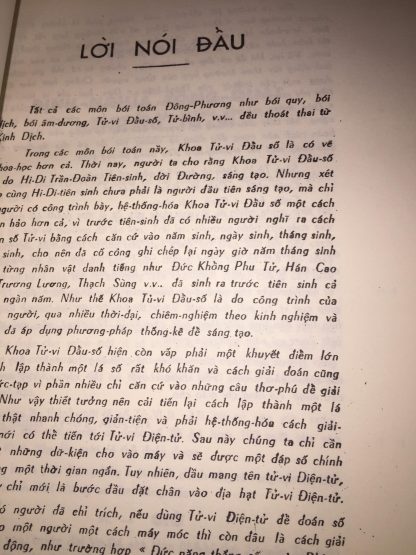 LỜI NÓI ĐẦU
Tất cả các môn bói toán Đông-Phương như bói quy, bói
dịch, bói âm-dương, Tử-vi Đẩu-số, Tử-bình, v.v... đều thoát thai từ
Kinh Dịch.
Trong các môn bói toán này, Khoa Tử-vi Đẩu số là có vẻ
khoa-học hơn cả. Thời nay, người ta cho rằng Khoa Tử-vi Đẩu-số
do Hi-Di Trần-Đoàn Tiên-sinh, đời Đường, sáng tạo. Nhưng xét
cùng Hi-Di-tiên-sinh chưa phải là người đầu tiên sáng tạo, mà chỉ
người có công trình bày, hệ-thống-hóa Khoa Tử-vi Đẩu số một cách
hoàn hảo hơn cả, vì trước tiên-sinh đã có nhiều người nghĩ ra cách
số Tử-vi bằng cách căn cứ vào năm sinh, ngày sinh, tháng sinh,
sinh, cho nên đã cố công ghi chép lại ngày giờ năm tháng sinh
từng nhân vật danh tiếng như Đức Khổng Phu Tử, Hán Cao
Trương Lương, Thạch Sùng v.v.. đã sinh ra trước tiên sinh cả
ngàn năm. Như thế Khoa Tử-vi Đẩu-số là do công trình của
người, qua nhiều thời-đại, chiêm-nghiệm theo kinh nghiệm và
đã áp dụng phương-pháp thống-kê để sáng tạo.
Khoa Tử-vi Đẩu-số hiện còn vấp phải một khuyết điểm lớn
lập thành một lá số rất khó khăn và cách giải đoán cũng
phức-tạp vì phần nhiều chỉ căn cứ vào những câu thơ-phú để giải
Như vậy thiết tưởng nên cải tiến lại cách lập thành một lá
thật nhanh chóng, giản-tiện và phải hệ-thống-hóa cách giải-
mới có thể tiến tới Tử-vi Điện-tử. Sau này chúng ta chỉ cần
những dữ-kiện cho vào máy và sẽ được một đáp số chính
một thời gian ngắn. Tuy nhiên, dầu mang tên tử-vi Điện-tử,
chỉ mới là bước đầu đặt chân vào địa hạt Tử-vi Điện-tử.
người đã chỉ trích, nếu dùng Tử-vi Điện-tử để đoán số
một người một cách máy móc thì còn đâu là cách giải
động, như trường hợp « Đức năng thắng số